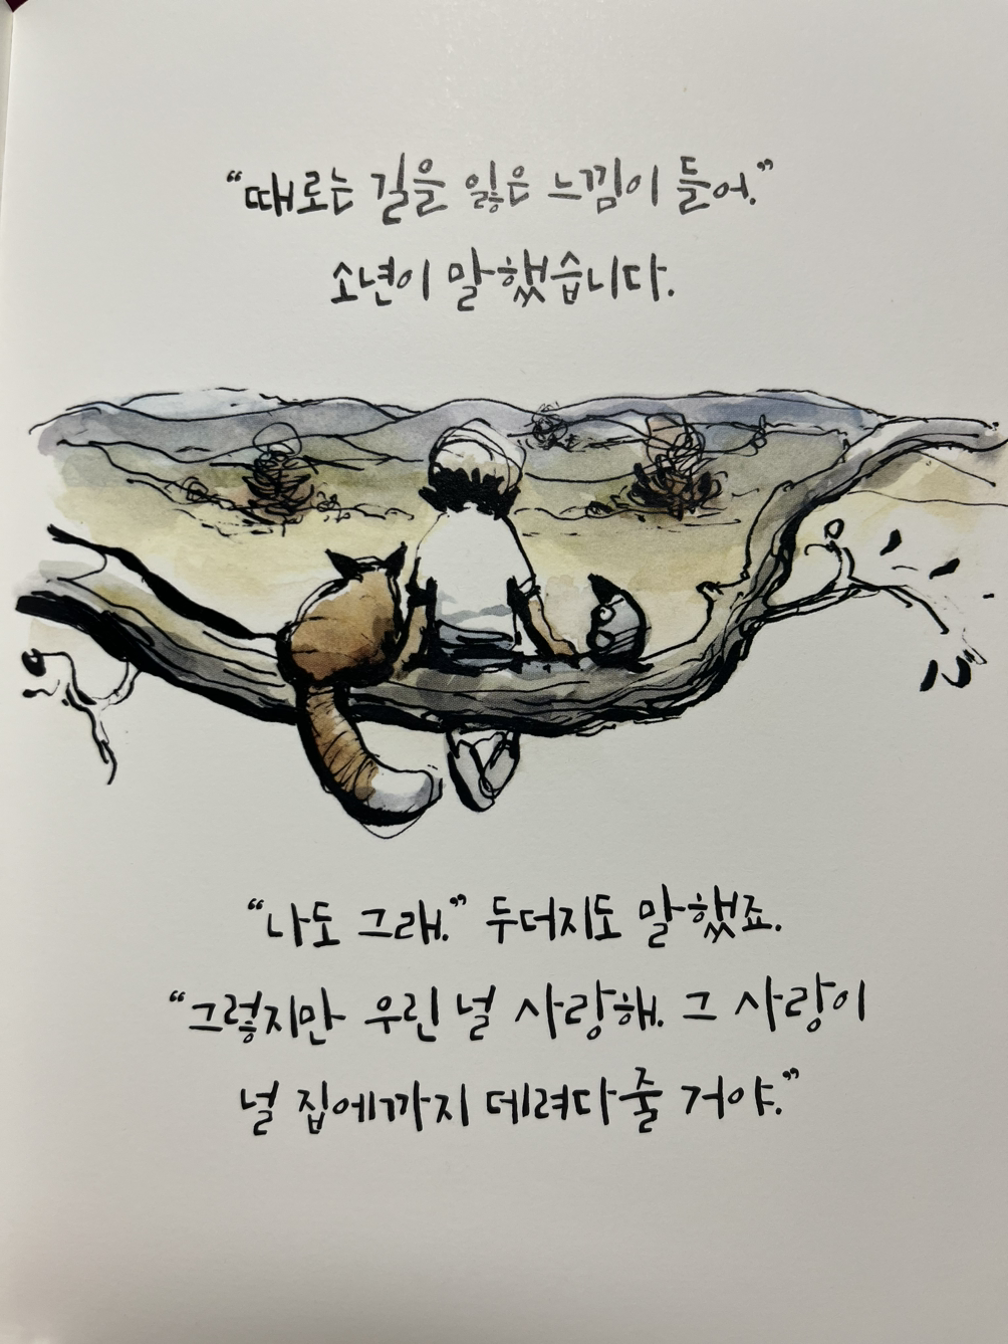 “때로는 길을 잃은 느낌이 들어.”
소년이 말했습니다.
“나도 그래.” 두더지도 말했죠.
“그렇지만 우린 널 사랑해. 그 사랑이
널 집에까지 데려다줄 거야.”